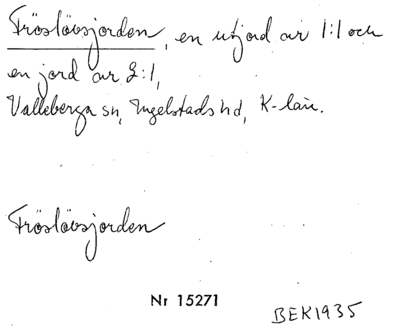 Fröslövsjorden, en utjord av 1:1 och
en jord av 2:1,
Valleberga sn, Ingelstads hd, K-län.
Fröslövsjorden
Nr 15271
BEK1935